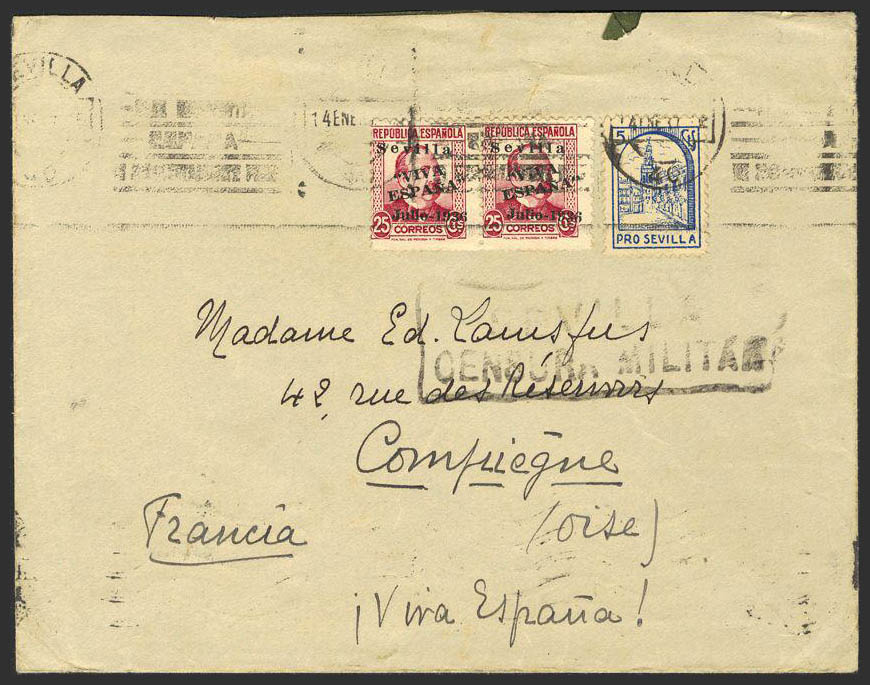 SEVILLA
14 ENE
REPÚBLICA ESPAÑOLA
Sevilla
"VIVA
ESPAÑA"
Julio-1936
25 Cs
CORREOS
REPÚBLICA ESPAÑOLA
Sevilla
"VIVA
ESPAÑA"
Julio-1936
25 Cs
CORREOS
5 Cs
PRO SEVILLA
SEVILLA
CENSURA MILITAR
Madame Ed.
42, rue des
Compiègne
Francia
(Oise)
¡Viva España!